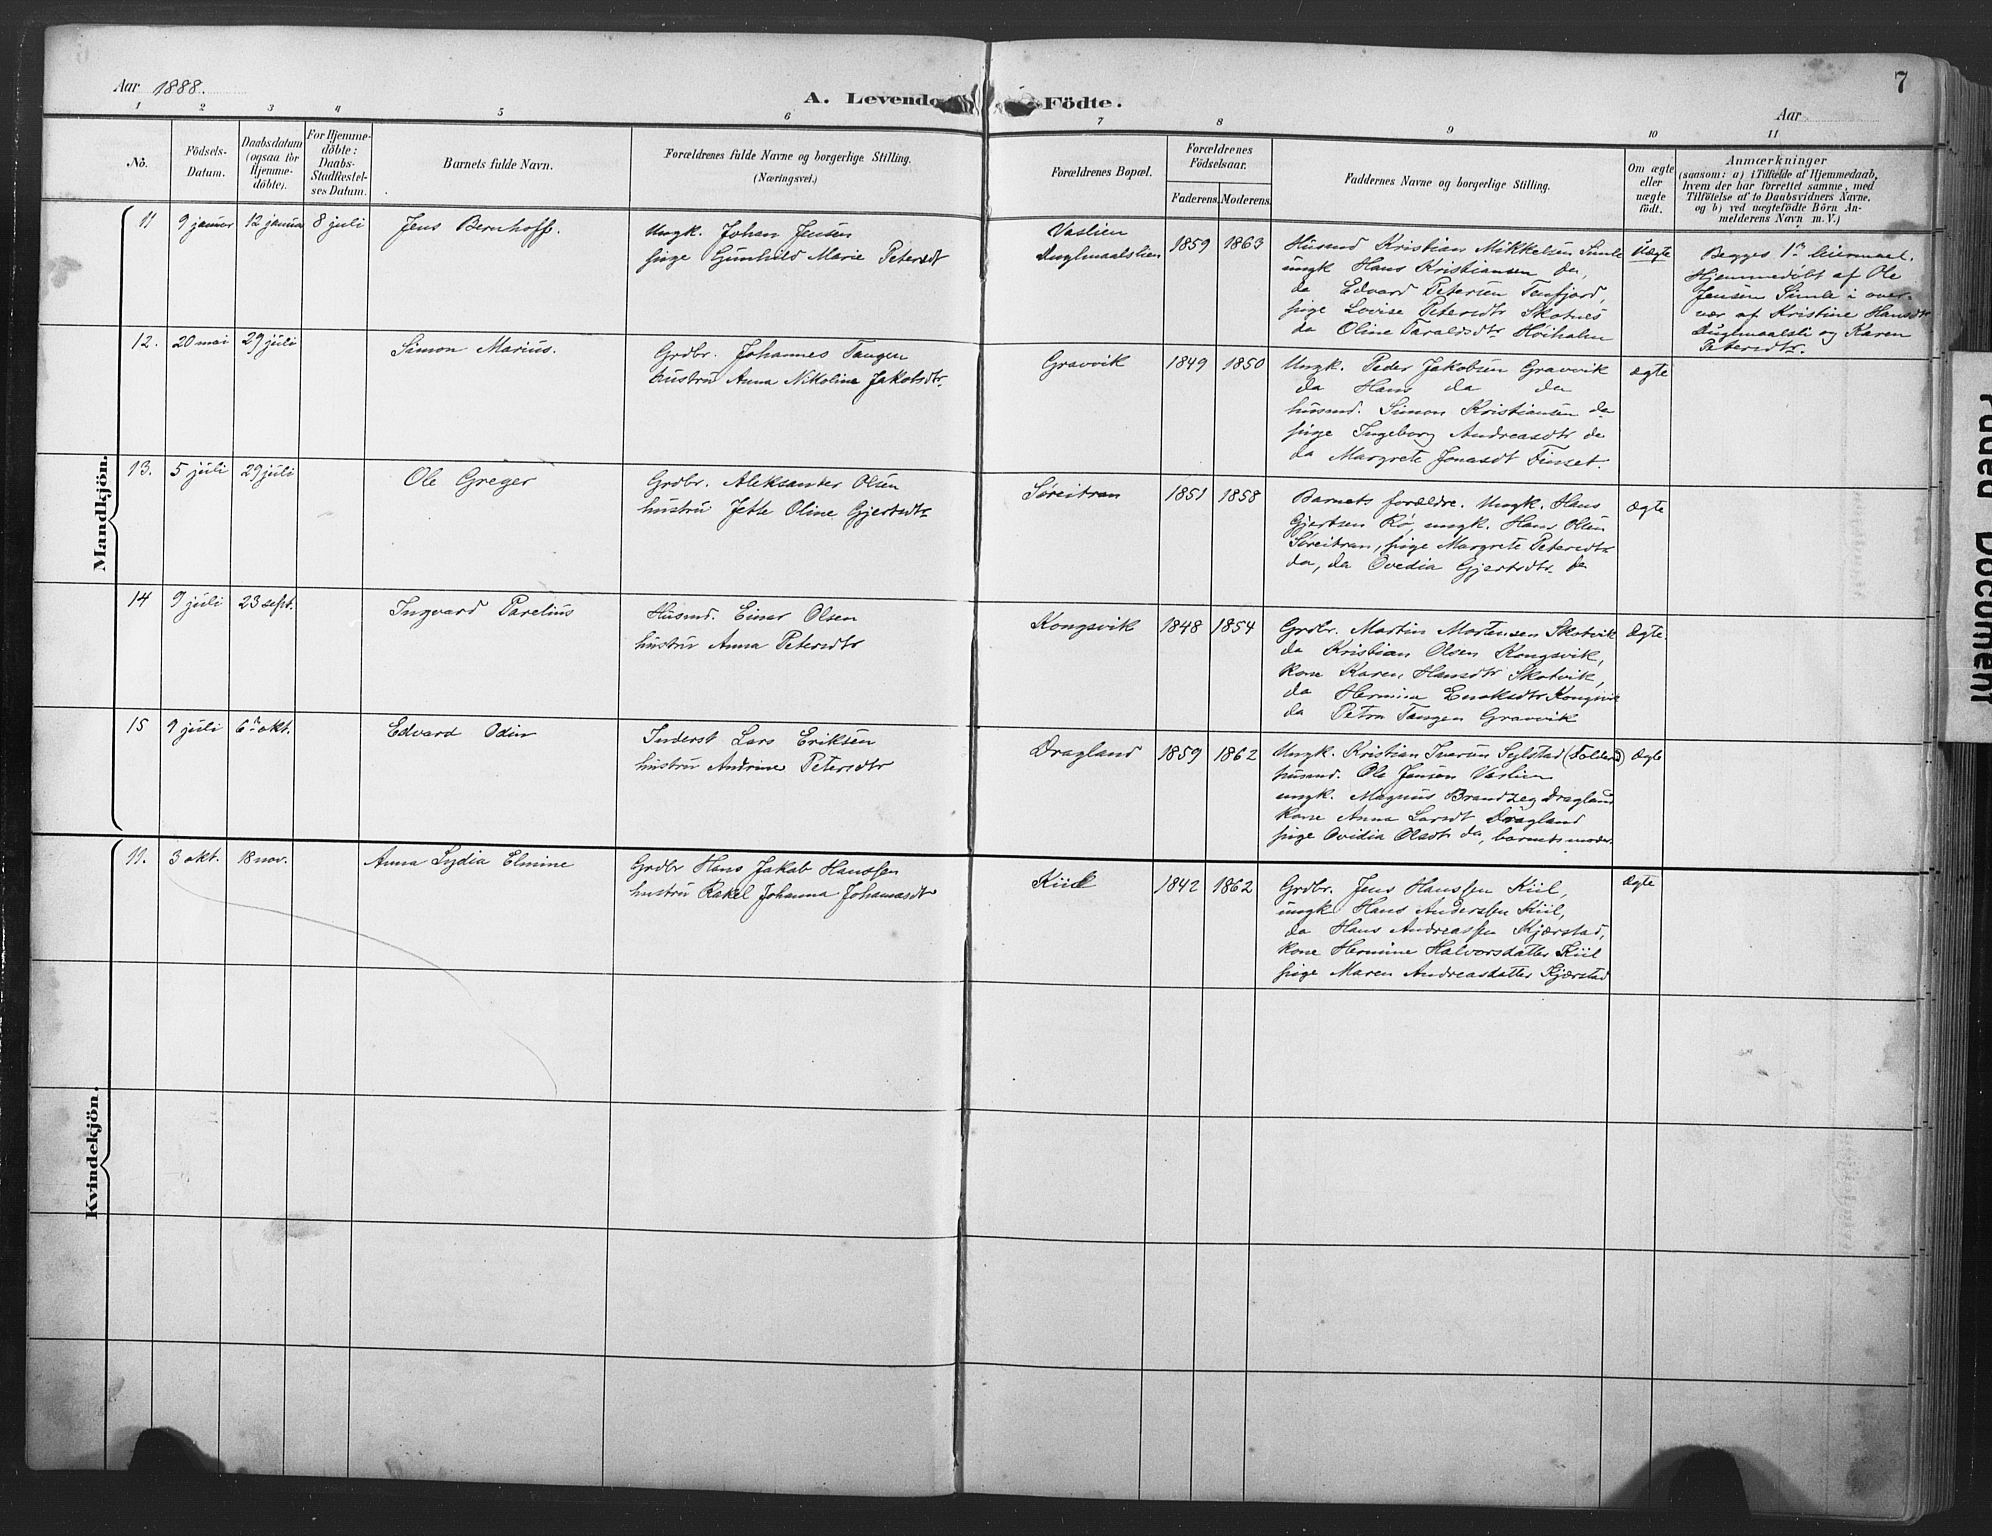 Aar 1888.
A. Levende Födte.
Aar
7
1 2 3 4 5 6 7 8 9 10 11
No.
Födsels-Datum.
Daabsdatum (ogsaa for Hjemme-döbte).
For Hjemme-döbte: Daabs-Stadfæstel-ses Datum.
Barnets fulde Navn.
Forældrenes fulde Navne og borgerlige Stilling.
(Næringsvei.)
Forældrenes Bopæl.
Forældrenes Födselsaar.
Faderens. Moderens.
Faddernes Navne og borgerlige Stilling.
Om ægte eller uægte födt.
Anmærkninger
(saasom: a) i Tilfælde af Hjemmedaab,
hvem der har forrettet samme, med
Tilföielse af to Daabsvidners Navne.
og b) ved uægtefödte Börn An-
melderens Navn m. V.)
Mandkjön.
11 9 januar 12 januar 8 juli Jens Bernhoff.
Ungk. Johan Jensen
pige Gunhild Marie Petersdt
Vaslien
Auglmaalslien
1859 1863
Husmd Kristian Mikkelsen Simle
ungk Hans Kristiansen do,
do Edvard Petersen Tenfjord,
pige Lovise Petersdtr Skotnes
do Oline Taraldsdtr Höiholm
Uægte
Begges 1ste leiermaal.
Hjemmedöbt af Ole
Jensen Simle i over-
vær af Kristine Hansdtr
Auglmaalsli og Karen
Petersdtr.
12. 20 mai 29 juli Simon Marius.
Grdbr. Johannes Tangen
hustru Anna Nikoline Jakobsdtr.
Gravvik
1849 1850
Ungk. Peder Jakobsen Gravvik
do Hans do do
husmd. Simon Kristiansen do
pige Ingeborg Andreasdtr do
do Margrete Jonasdt Finset.
ægte
13. 5 juli 29 juli Ole Greger
Grdbr. Aleksander Olsen
hustru Jette Oline Gjertsdtr
Søreitran
1851 1858
Barnets forældre. Ungk. Hans
Gjertsen Rø, ungk. Hans Olsen
Søreitran, pige Margrete Petersdtr
do, do Ovedia Gjertsdtr do
ægte
14 9 juli 23 sept. Ingvard Parelius
Husmd. Einar Olsen
hustru Anna Petersdtr
Kongsvik
1848 1854
Grdbr. Martin Mortensen Skotvik
do Kristian Olsen Kongsvik,
kone Karen Hansdtr Skotvik,
do Hermina Enoksdtr Kongsvik
do Petra Tangen Gravvik
Ægte.
15 9 juli 6 okt. Edvard Odin
Inderst Lars Eriksen
hustru Andrine Petersdtr
Dragland
1859 1862
Ungk. Kristian Iversen Sylstad (Folderd)
husmd. Ole Jensen Vaslien
ungk. Magnus Brandzeg Dragland
kone Anna Larsdt Dragland
pige Ovidia Olsdt do, barnets moder.
Ægte
Kvindekjön.
11. 3 okt. 18 nov. Anna Lydia Elmine
Grdbr Hans Jakob Hanssen
hustru Rakel Johanna Johannesdtr
Kiil
1842 1862
Grdbr. Jens Hanssen Kiil,
ungk Hans Anderssen Kiil,
do Hans Andreassen Kjærstad,
kone Hermine Halvorsdatter Kiil
pige Maren Andreasdatter Kjærstad
Ægte
Faded Document